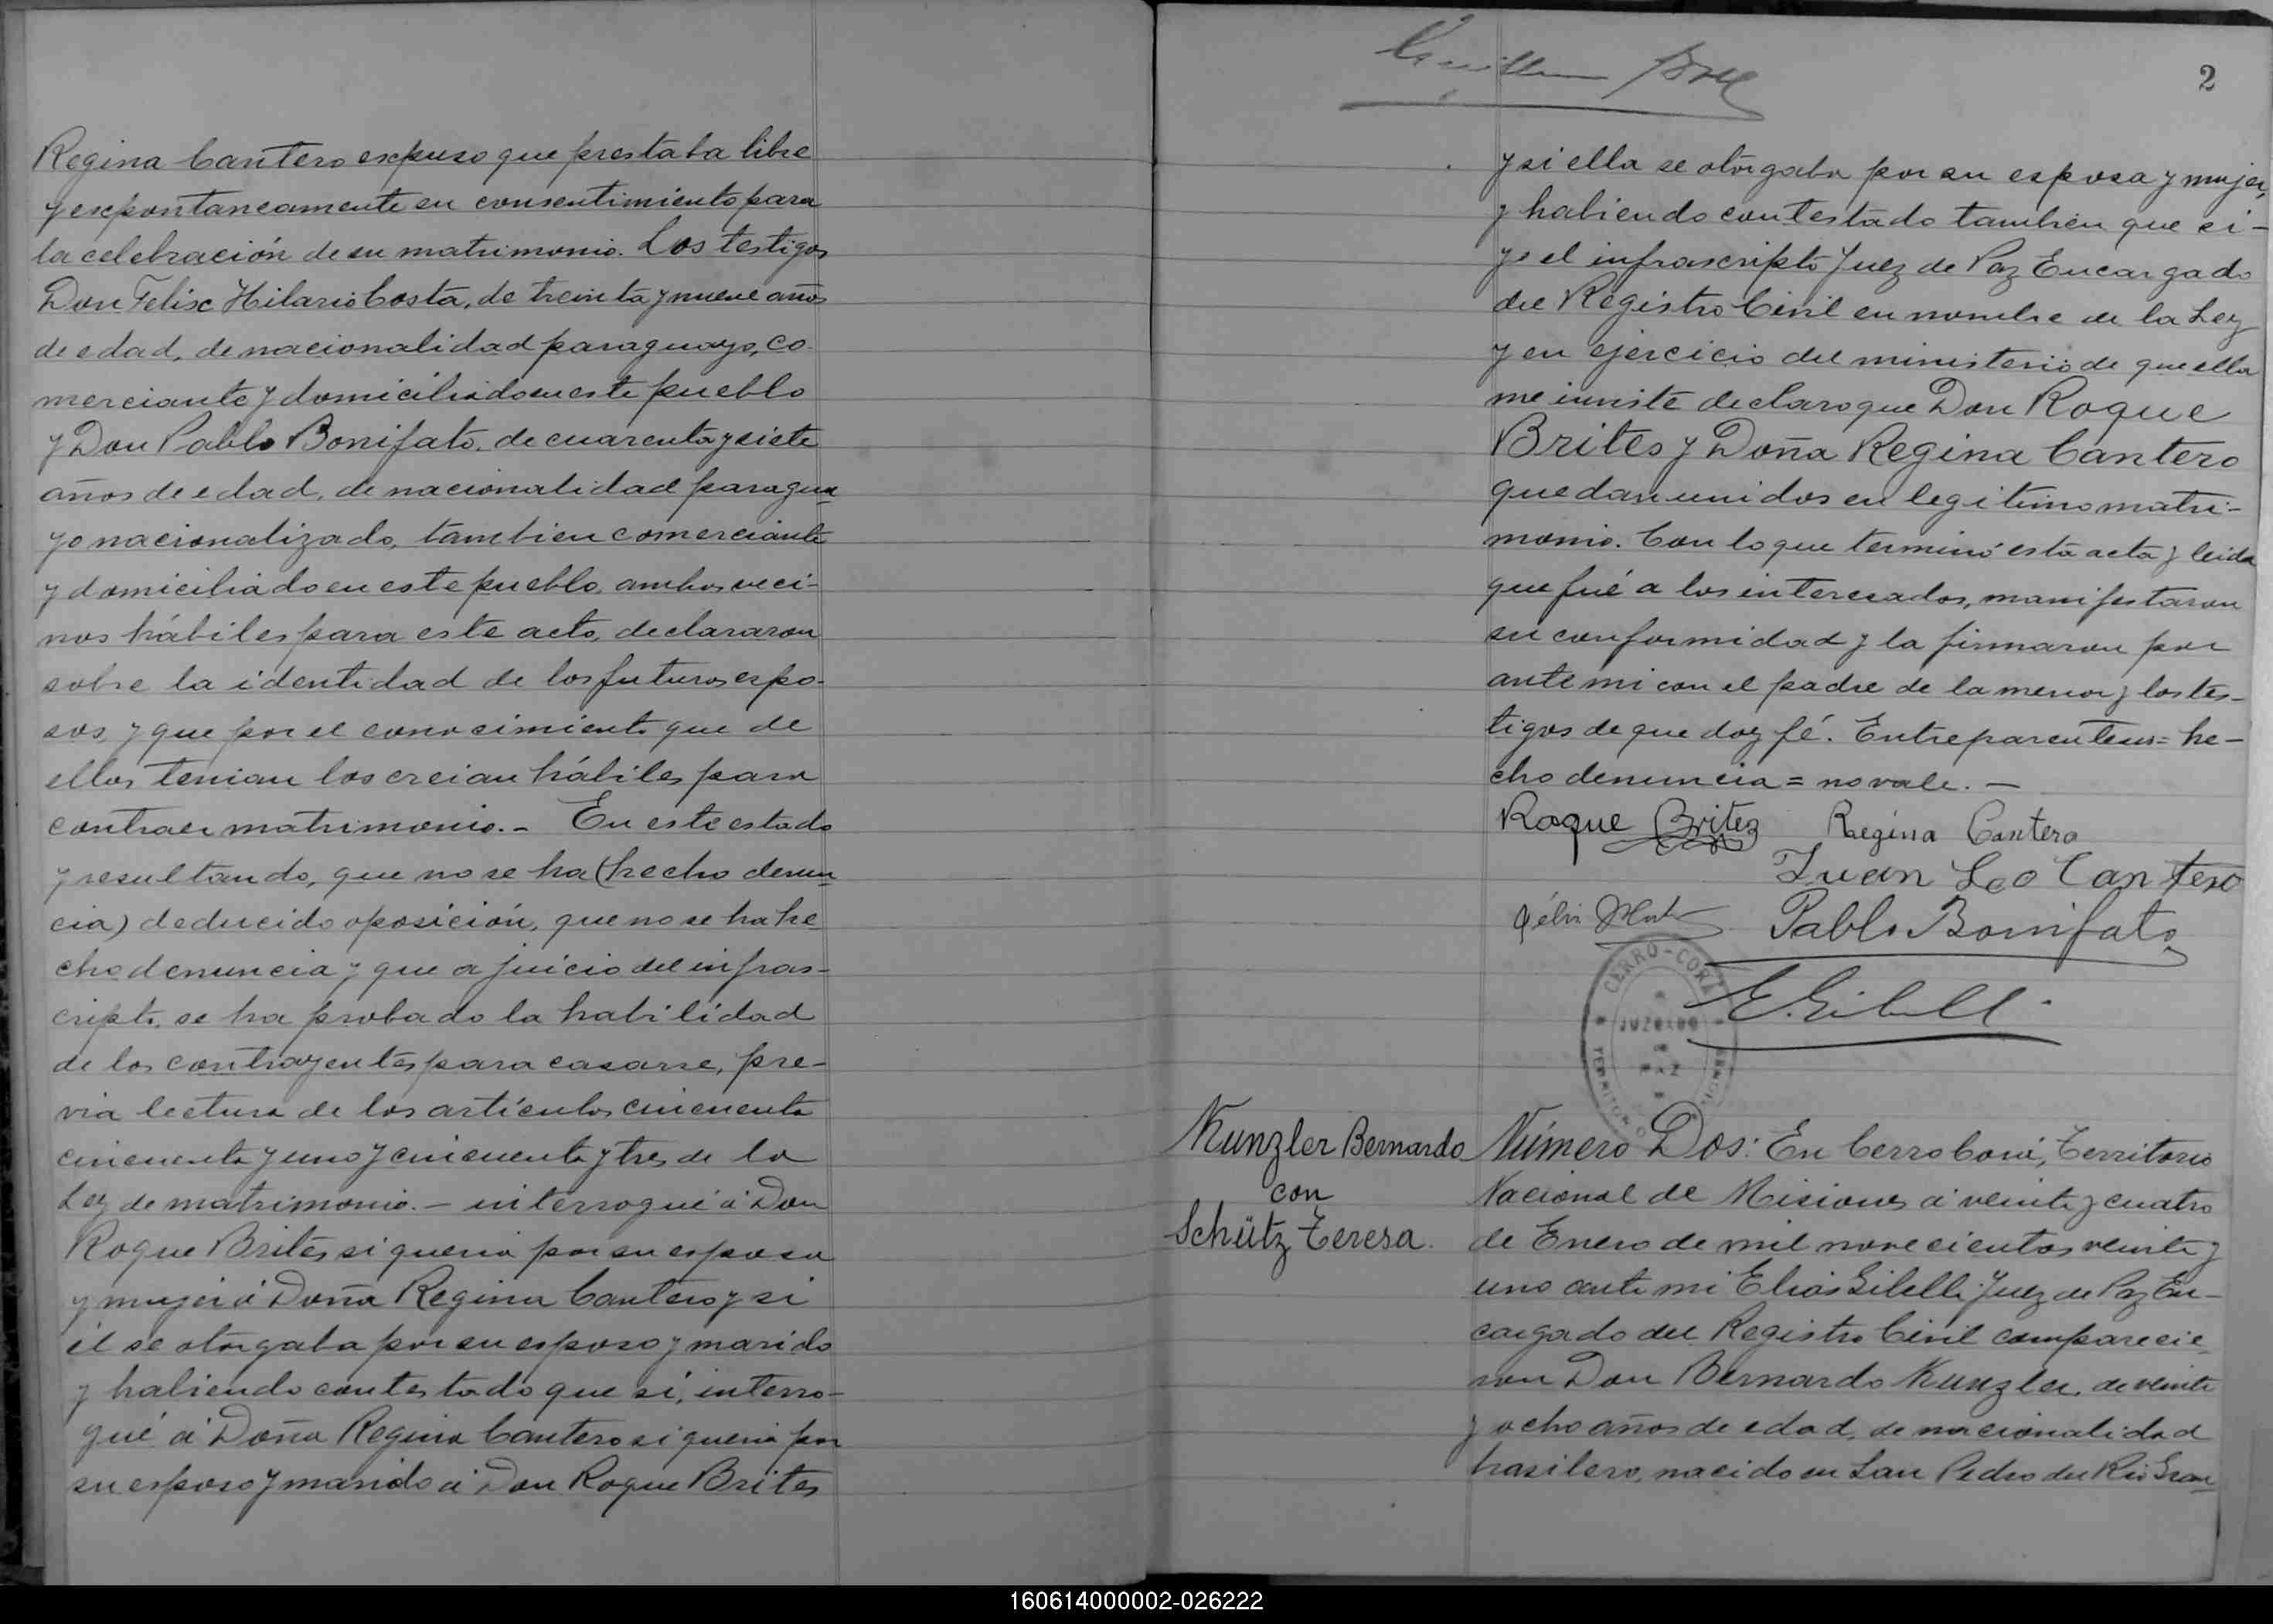 Regina Cantero expuso que prestaba libre
y expontaneamente su consentimiento para
la celebración de su matrimonio. Los testigos
Don Felix Hilario Costa, de treinta y nueve años
de edad, de nacionalidad paraguayo, co-
merciante y domiciliado en este pueblo
y Don Pablo Bonifato, de cuarenta y siete
años de edad, de nacionalidad paragua
yo nacionalizado, tambien comerciante
y domiciliado en este pueblo, ambos veci-
nos hábiles para este acto, declararon
sobre la identidad de los futuros espo-
sos, y que por el conocimiento que de
ellos tenian los creian hábiles para
contraer matrimonio.- En este estado
y resultando, que no se ha (hecho denun
cia) deducido oposición, que no se ha he
cho denuncia y que a juicio del infras-
cripto, se ha probado la habilidad
de los contrayentes para casarse, pre-
via lectura de los artículos cincuenta
cincuenta y uno y cincuenta y tres de la
Ley de matrimonio.- interrogué á Don
Roque Brites si queria por su esposa
y mujer á Doña Regina Cantero y si
él se otorgaba por su esposo y marido
y habiendo contestado que sí, interro-
gué á Doña Regina Cantero si queria por
su esposo y marido á Don Roque Brites
2
y si ella se otorgaba por su esposa y mujer,
y habiendo contestado tambien que si-
yo el infrascripto Juez de Paz Encargado
del Registro Civil en nombre de la Ley
y en ejercicio del ministerio de que ella
me inviste declaro que Don Roque
Brites y Doña Regina Cantero
quedan unidos en legitimo matri-
monio. Con lo que terminó esta acta y leida
que fué a los interesados, manifestaron
su conformidad y la firmaron por
ante mi con el padre de la menor y los tes-
tigos de que doy fé. Entreparentesis= he-
cho denuncia = no vale.-
Roque Britez Regina Cantero
Juan Leo Cantero
Félix Pablo Bonifato
E. Gibelli
CERRO-CORÁ
JUZGADO
DE
PAZ
Kunzler Bernardo
con
Schütz Teresa.
Número Dos: En Cerro Corá, Territorio
Nacional de Misiones á veinte y cuatro
de Enero de mil novecientos veinte y
uno ante mi Elias Gibelli Juez de Paz En-
cargado del Registro Civil comparecie
ron Don Bernardo Kunzler, de veinte
y ocho años de edad, de nacionalidad
brasilero, nacido en San Pedro del Rio Gran
160614000002-026222